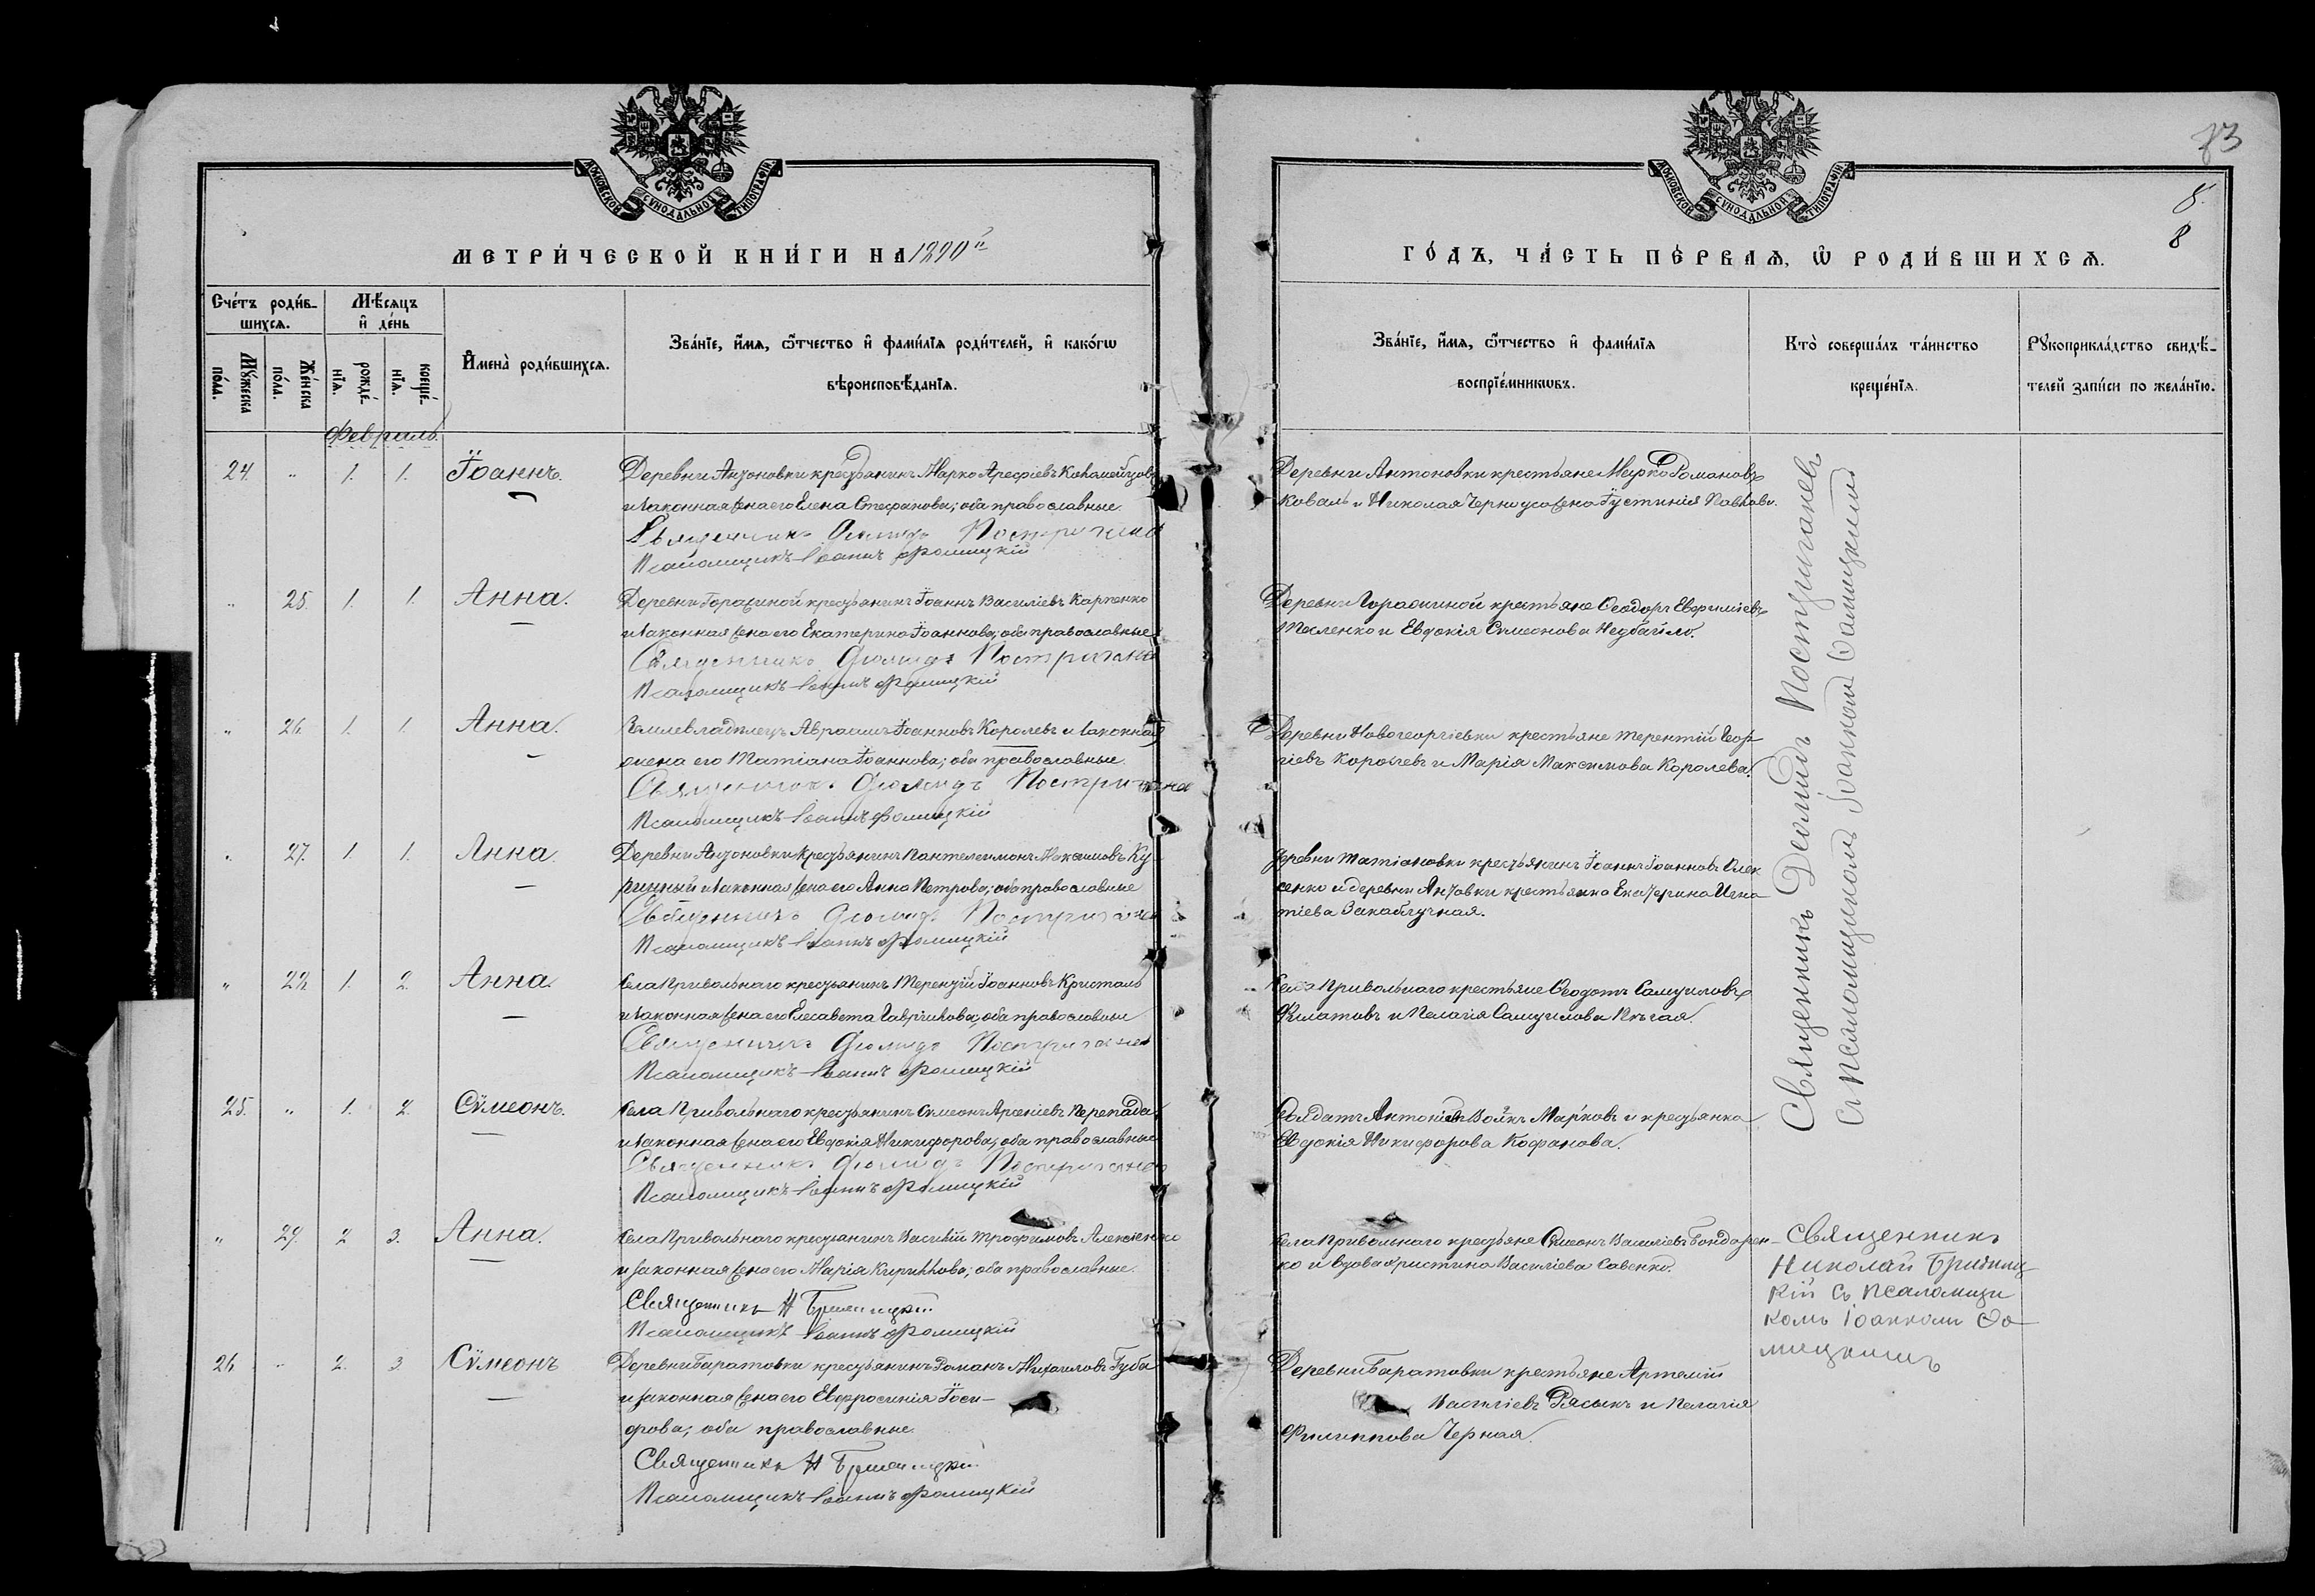 73
8.
8
МОСКОВСКОЙ СѴНОДАЛЬНОЙ ТИПОГРАФІИ
МОСКОВСКОЙ СѴНОДАЛЬНОЙ ТИПОГРАФІИ
МЕТРИ́ЧЕСКОЙ КНИ́ГИ НА 1890й
ГО́ДЪ, ЧА́СТЬ ПЕ́РВАЯ, Ѡ҆ РОДИ́ВШИХСЯ.
Сче́тъ роди́в-
шихся.
Мѣ́сяцъ
и҆ де́нь
Мꙋ́жеска
по́ла.
Же́нска
по́ла.
рожде́-
нїя.
креще́-
нїя.
И҆мена̀ роди́вшихся.
Зва́нїе, и҆́мя, ѻ҆́тчество и҆ фами́лїя роди́телей, и҆ како́гѡ
вѣроисповѣ́данїя.
Зва́нїе, и҆́мя, ѻ҆́тчество и҆ фами́лїя
воспрїе́мникѡвъ.
Кто̀ соверша́лъ та́инство
креще́нїя.
Рꙋкоприкла́дство свидѣ́-
телей за́писи по жела́нїю.
Февраль.
24. " 1. 1. Іоаннъ.
Деревни Антоновки крестьянинъ Марко Арефіевъ
и законная жена его Елена Стефанова; оба православные.
Священникъ Діомидъ Постригачевъ
Псаломщикъ Іоаннъ Фомицкій
Деревни Антоновки крестьяне Марко Романовъ
Коваль и Николая Черноуса жена Іустинія Павлова.
" 25. 1. 1. Анна.
Деревни Горожиной крестьянинъ Іоаннъ Василіевъ Карпенко
и законная жена его Екатерина Іоаннова; оба православные
Священникъ Діомидъ Постригачевъ
Псаломщикъ Іоаннъ Фомицкій
Деревни Горожиной крестьяне Ѳеодоръ Евфиміевъ
и Евдокія Симеонова Недбайло.
" 26. 1. 1. Анна.
Землевладѣлецъ Авраамъ Іоанновъ Королевъ и законная
жена его Татіана Іоаннова; оба православные.
Священникъ Діомидъ Постригачевъ
Псаломщикъ Іоаннъ Фомицкій
Деревни Новогеоргіевки крестьяне Терентій Геор-
гіевъ Королевъ и Марія Максимова Королева.
" 27. 1. 1. Анна.
Деревни Антоновки крестьянинъ Пантелеимонъ Максимовъ Ку-
ринный и законная жена его Анна Петрова; оба православные
Священникъ Діомидъ Постригачевъ
Псаломщикъ Іоаннъ Фомицкій
Деревни Татіановки крестьянинъ Іоаннъ Іоанновъ Олек-
сенко и деревни Антовки крестьянка Екатерина Игна-
тіева Закаблучная.
" 28. 1. 2. Анна.
Села Привольнаго крестьянинъ Терентій Іоанновъ Кристаль
и законная жена его Елисавета Гавріилова; оба православные
Священникъ Діомидъ Постригачевъ
Псаломщикъ Іоаннъ Фомицкій
Села Привольнаго крестьяне Ѳеодотъ Самуиловъ
Филатовъ и Пелагія Самуилова Пѣгая.
25. " 1. 2. Сѵмеонъ.
Села Привольнаго крестьянинъ Симеонъ Арсеніевъ Перепада
и законная жена его Евдокія Никифорова; оба православные
Священникъ Діомидъ Постригачевъ
Псаломщикъ Іоаннъ Фомицкій
Солдатъ Марковъ и крестьянка
Евдокія Никифорова Кофанова.
" 29. 2. 3. Анна.
Села Привольнаго крестьянинъ Василій Трофимовъ Алексеенко
и законная жена его Марія Кириллова; оба православные.
Священникъ Н
Псаломщикъ Іоаннъ Фомицкій
Села Привольнаго крестьяне Симеонъ Василіевъ Бондарен-
ко и вдова Христина Василіева Савенко.
26. " 2. 3. Сѵмеонъ
Деревни Баратовки крестьянинъ Романъ Михаиловъ Губа
и законная жена его Евфросинія Іоси-
фова; оба православные.
Священникъ Н
Псаломщикъ Іоаннъ Фомицкій
Деревни Баратовки крестьяне Артемій
Василіевъ Рясыкъ и Пелагія
Филиппова Черная.
Священникъ Діомидъ Постригачевъ
съ псаломщикомъ Іоанномъ Фомицкимъ
Священникъ
Николай
кій съ псаломщи-
комъ Іоанномъ Ѳо-
мицкимъ